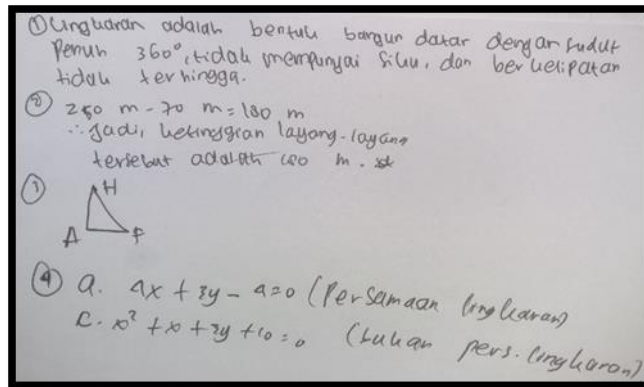 ① Lingkaran adalah bentuk bangun datar dengan sudut
Penuh 360°, tidak mempunyai siku, dan berkelipatan
tidak terhingga.
② 250 m - 70 m = 180 m
∴ Jadi, ketinggian layang-layang
tersebut adalah 180 m.
③ H
A P
④ a. 4x + 3y - 4 = 0 (Persamaan lingkaran)
c. x² + x + 3y + 10 = 0 (bukan pers. lingkaran)